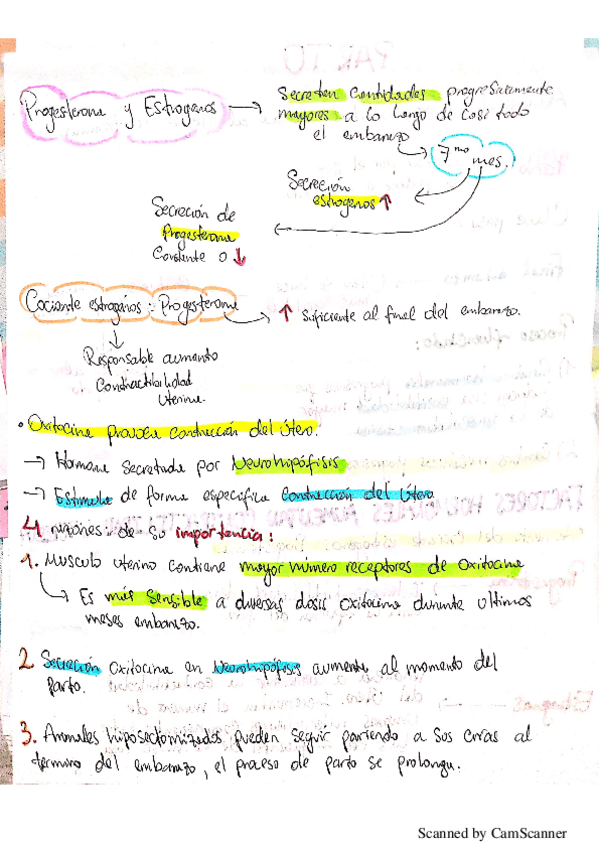 Progesterona y Estrogenos → Secretan Cantidades progresivamente
mayores a lo largo de casi todo
el embarazo
7mo mes.
Secreción
estrogenos ↑
Secreción de
Progesterona
Constante o ↓
Cociente estrogenos : Progesterona
↑ suficiente al final del embarazo.
Responsable aumento
Contractibilidad
Uterina
• Oxitocina provoca contracción del útero.
→ Hormona secretada por Neurohipófisis
→ Estimula de forma especifica contracción del Útero
4 razones de su importancia:
1. Musculo uterino contiene mayor número receptores de oxitocina
Es más sensible a diversas dosis oxitocina durante ultimos
meses embarazo.
2. Secreción oxitocina en Neurohipófisis aumenta al momento del
Parto.
3. Animales hiposectomizados pueden seguir pariendo a sus crias al
termino del embarazo, el proceso de parto se prolonga.
Scanned by CamScanner